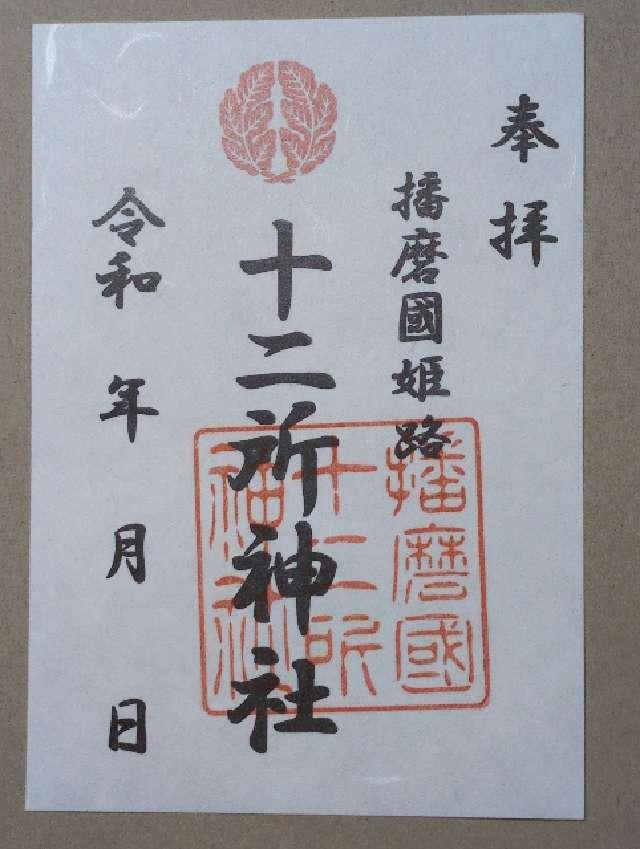 奉拝
播磨國姫路
十二所神社
播磨國
十二所
神社
令和 年 月 日